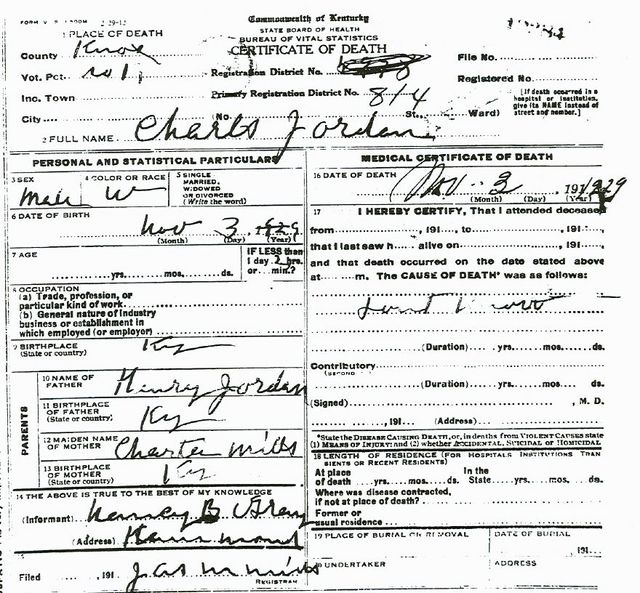 FORM V. S. 2-29-12
Commonwealth of Kentucky
STATE BOARD OF HEALTH
BUREAU OF VITAL STATISTICS
CERTIFICATE OF DEATH
1 PLACE OF DEATH
County Knox
Vot. Pct. No 1
Inc. Town
City
Registration District No.
Primary Registration District No. 814
No. St. Ward)
File No.
Registered No.
[If death occurred in a hospital or institution, give its NAME instead of street and number.]
2 FULL NAME Charls Jordan
PERSONAL AND STATISTICAL PARTICULARS
3 SEX
Male
4 COLOR OR RACE
W
5 SINGLE MARRIED, WIDOWED OR DIVORCED (Write the word)
6 DATE OF BIRTH
Nov 3 1929
(Month) (Day) (Year)
7 AGE
yrs. mos. ds.
IF LESS than 1 day 2 hrs. or min.?
8 OCCUPATION
(a) Trade, profession, or particular kind of work
(b) General nature of industry business or establishment in which employed (or employer)
9 BIRTHPLACE
(State or country) Ky
PARENTS
10 NAME OF FATHER Henry Jordan
11 BIRTHPLACE OF FATHER
(State or country) Ky
12 MAIDEN NAME OF MOTHER Mills
13 BIRTHPLACE OF MOTHER
(State or country) Ky
14 THE ABOVE IS TRUE TO THE BEST OF MY KNOWLEDGE
(Informant) B
(Address)
15
Filed , 191 Jas M Mills
REGISTRAR
MEDICAL CERTIFICATE OF DEATH
16 DATE OF DEATH
Nov 3 1929
(Month) (Day) (Year)
17 I HEREBY CERTIFY, That I attended deceased
from , 191 , to , 191
that I last saw h alive on , 191
and that death occurred on the date stated above
at m. The CAUSE OF DEATH* was as follows:
(Duration) yrs. mos. ds.
Contributory
(Duration) yrs. mos. ds.
(Signed) , M. D.
, 191 (Address)
*State the DISEASE CAUSING DEATH, or, in deaths from VIOLENT CAUSES state (1) MEANS OF INJURY; and (2) whether ACCIDENTAL, SUICIDAL or HOMICIDAL
18 LENGTH OF RESIDENCE (FOR HOSPITALS INSTITUTIONS TRANSIENTS OR RECENT RESIDENTS)
At place of death yrs. mos. ds. In the State yrs. mos. ds.
Where was disease contracted, if not at place of death?
Former or usual residence
19 PLACE OF BURIAL OR REMOVAL
DATE OF BURIAL
191
20 UNDERTAKER
ADDRESS